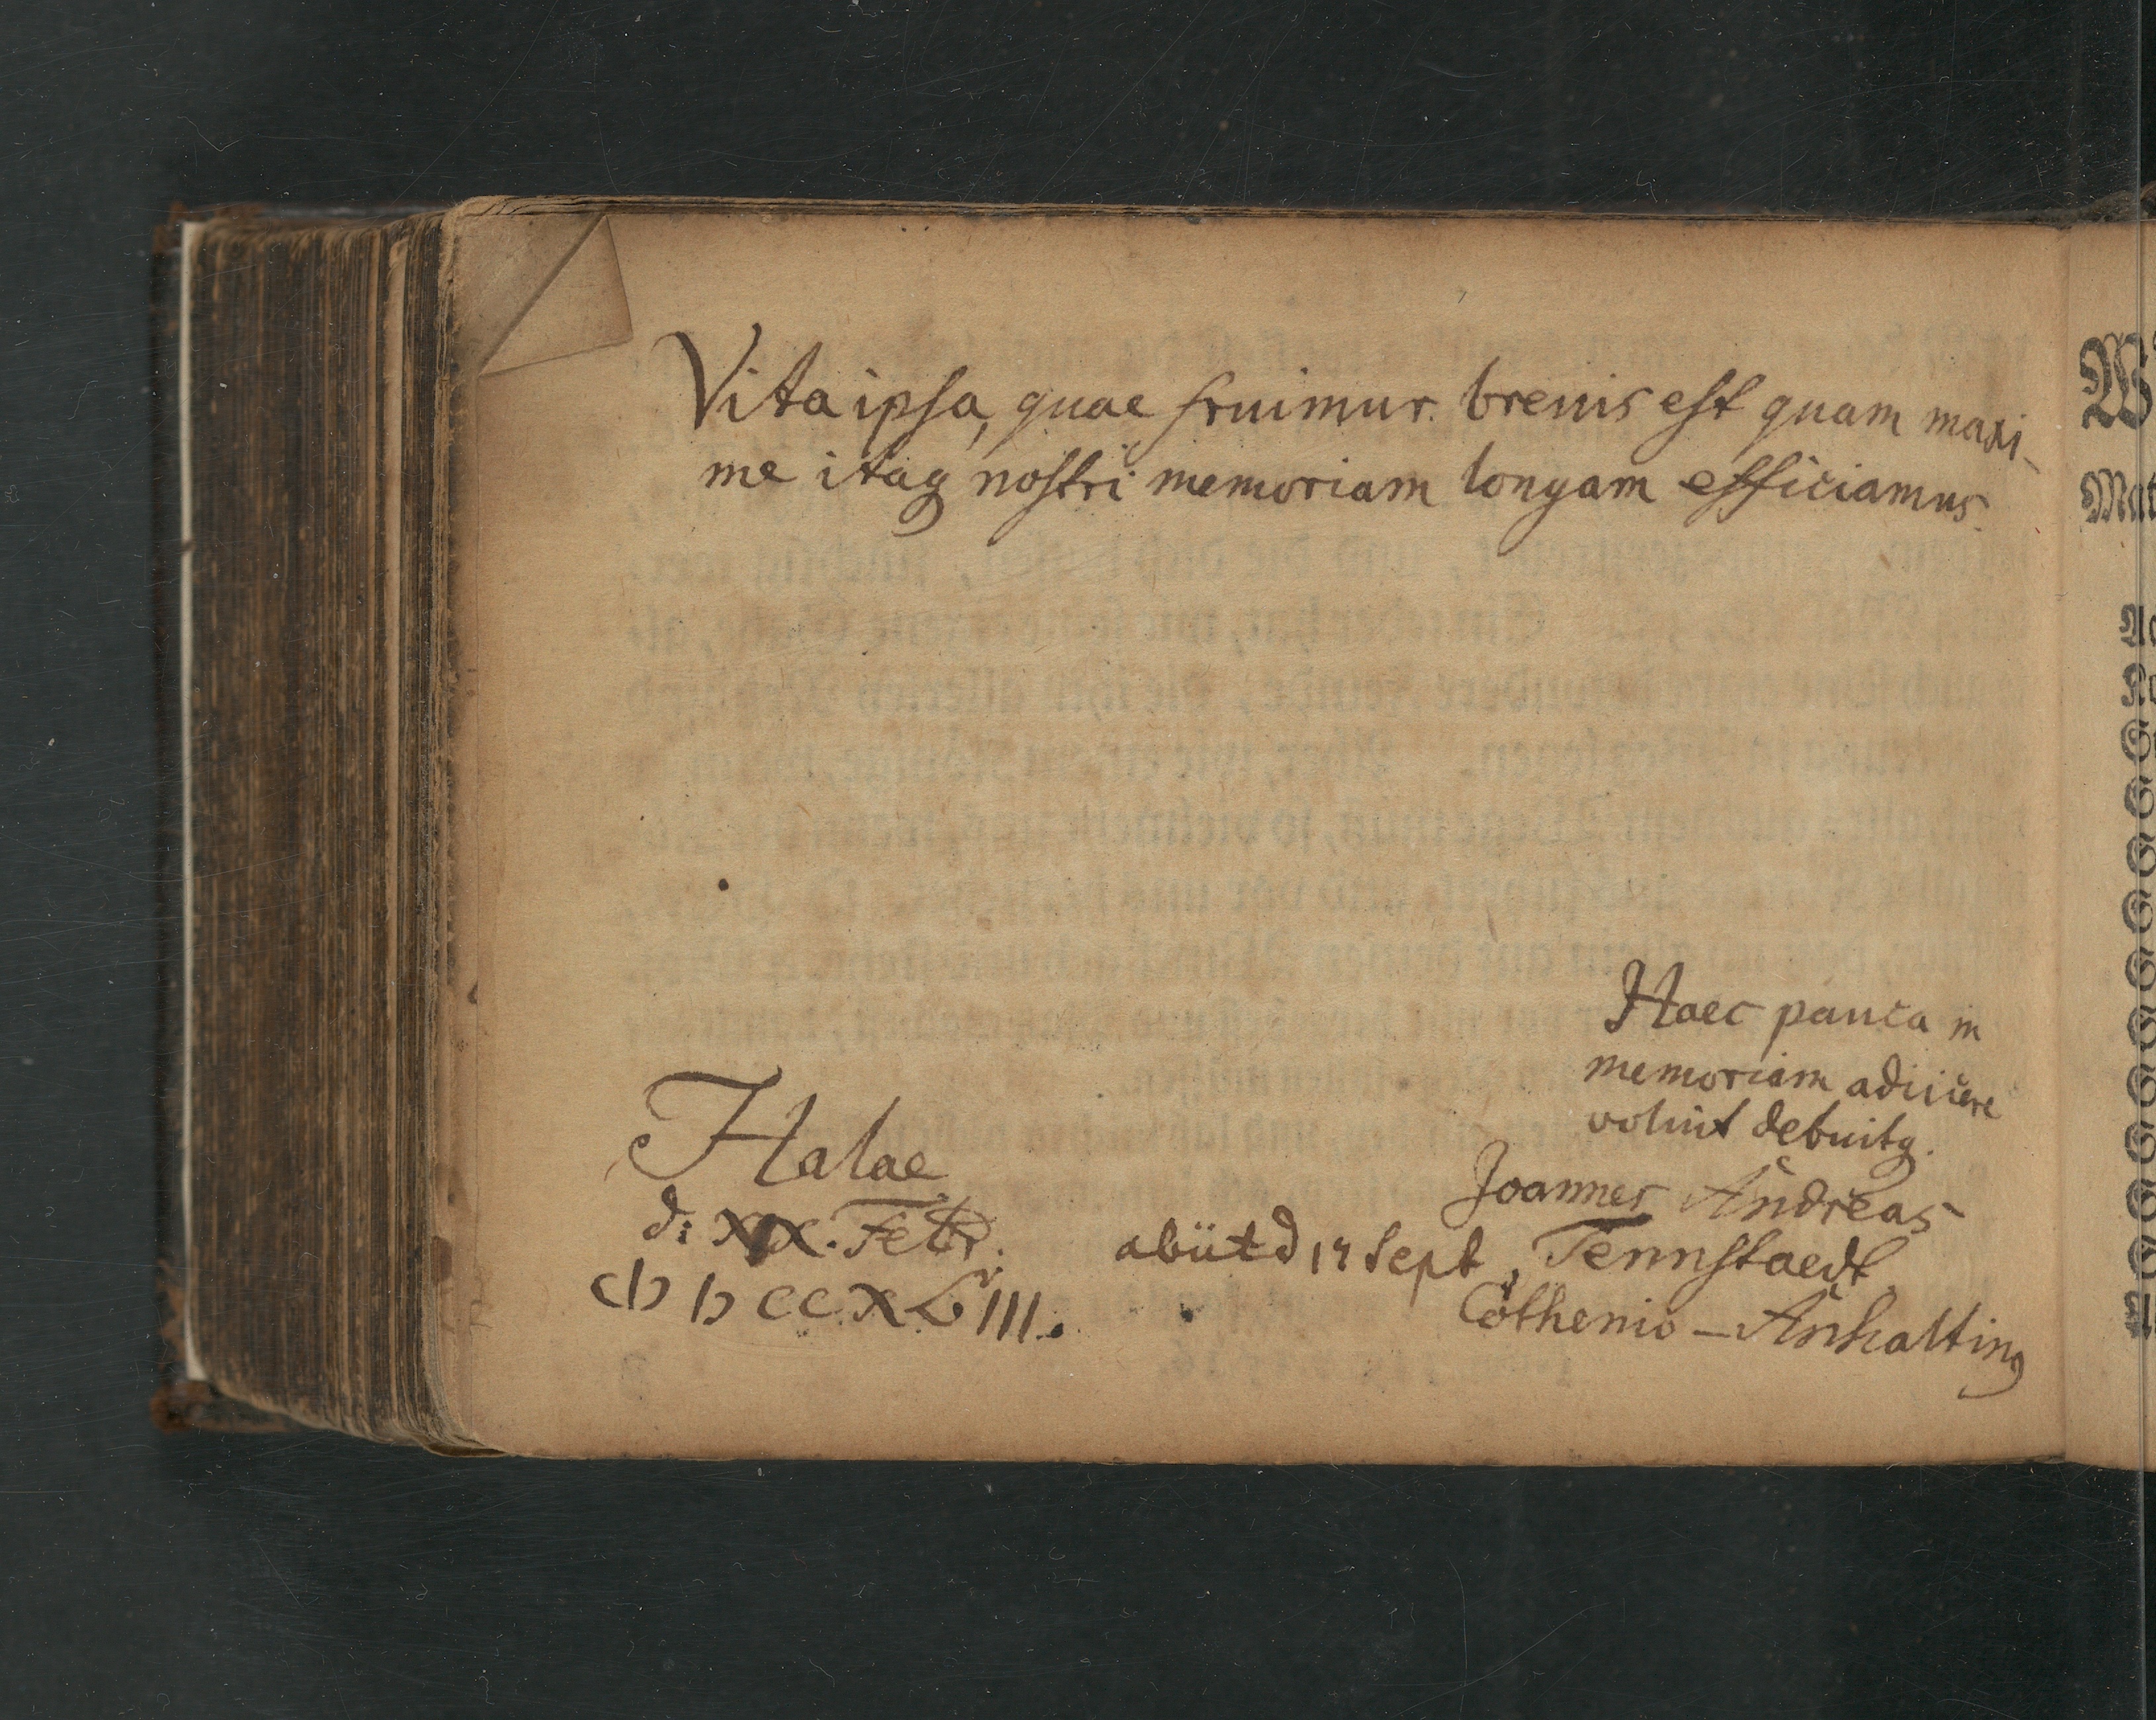 Vita ipsa, quae fruimur. brevis est quam maxi-
me itaq nostri memoriam longam efficiamus.
Haec pauca in
memoriam adiicere
voluit debuitq.
Joannes Andreas
Tennstaedt
Cöthenio – Anhaltinq
Halae
d: XIX. Febr.
cIↃ IↃ CC XLVIII.
abiit d 17 Sept
W
Mat